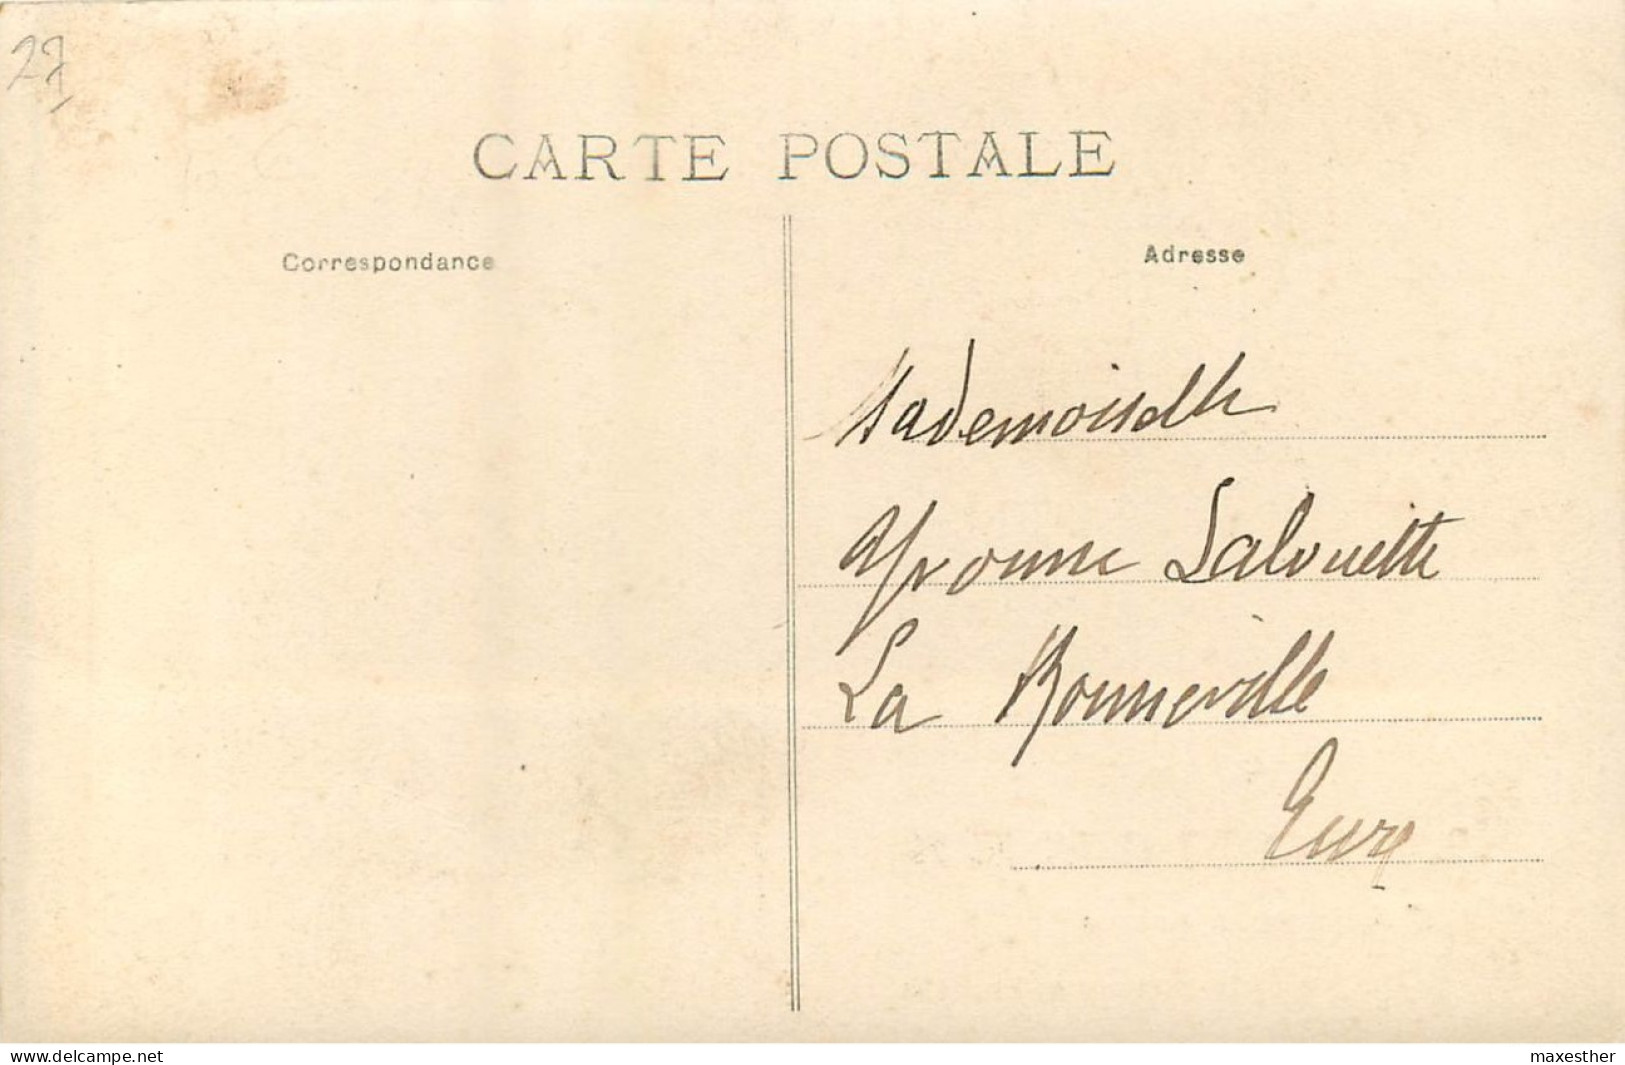 27
CARTE POSTALE
Correspondance
Adresse
Mademoiselle
Yvonne Lalouette
La Bonneville
Eure
www.delcampe.net
maxesther